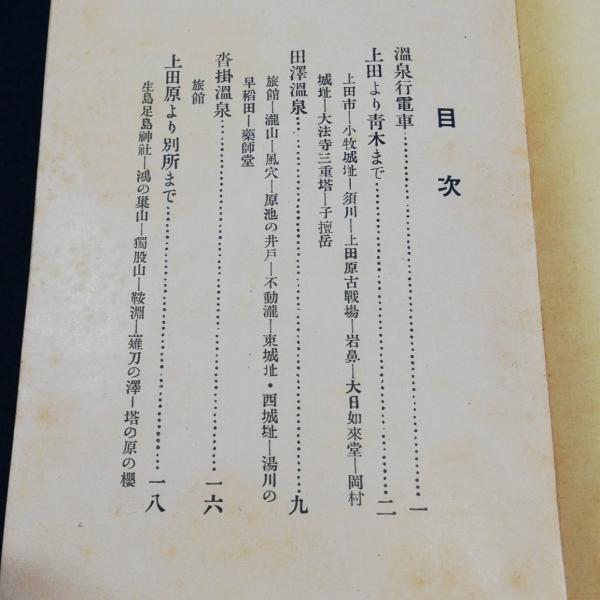 目次
溫泉行電車……………………………一
上田より靑木まで……………………………二
上田市―小牧城址―須川―上田原古戰場―岩鼻―大日如來堂―岡村
城址―大法寺三重塔―子檀岳
田澤溫泉……………………………九
旅館―瀧山―風穴―原池の井戶―不動瀧―東城址・西城址―湯川の
早稻田―藥師堂
沓掛溫泉……………………………一六
旅館
上田原より別所まで……………………………一八
生島足島神社―鴻の巢山―獨股山―鞍淵―薙刀の澤―塔の原の櫻